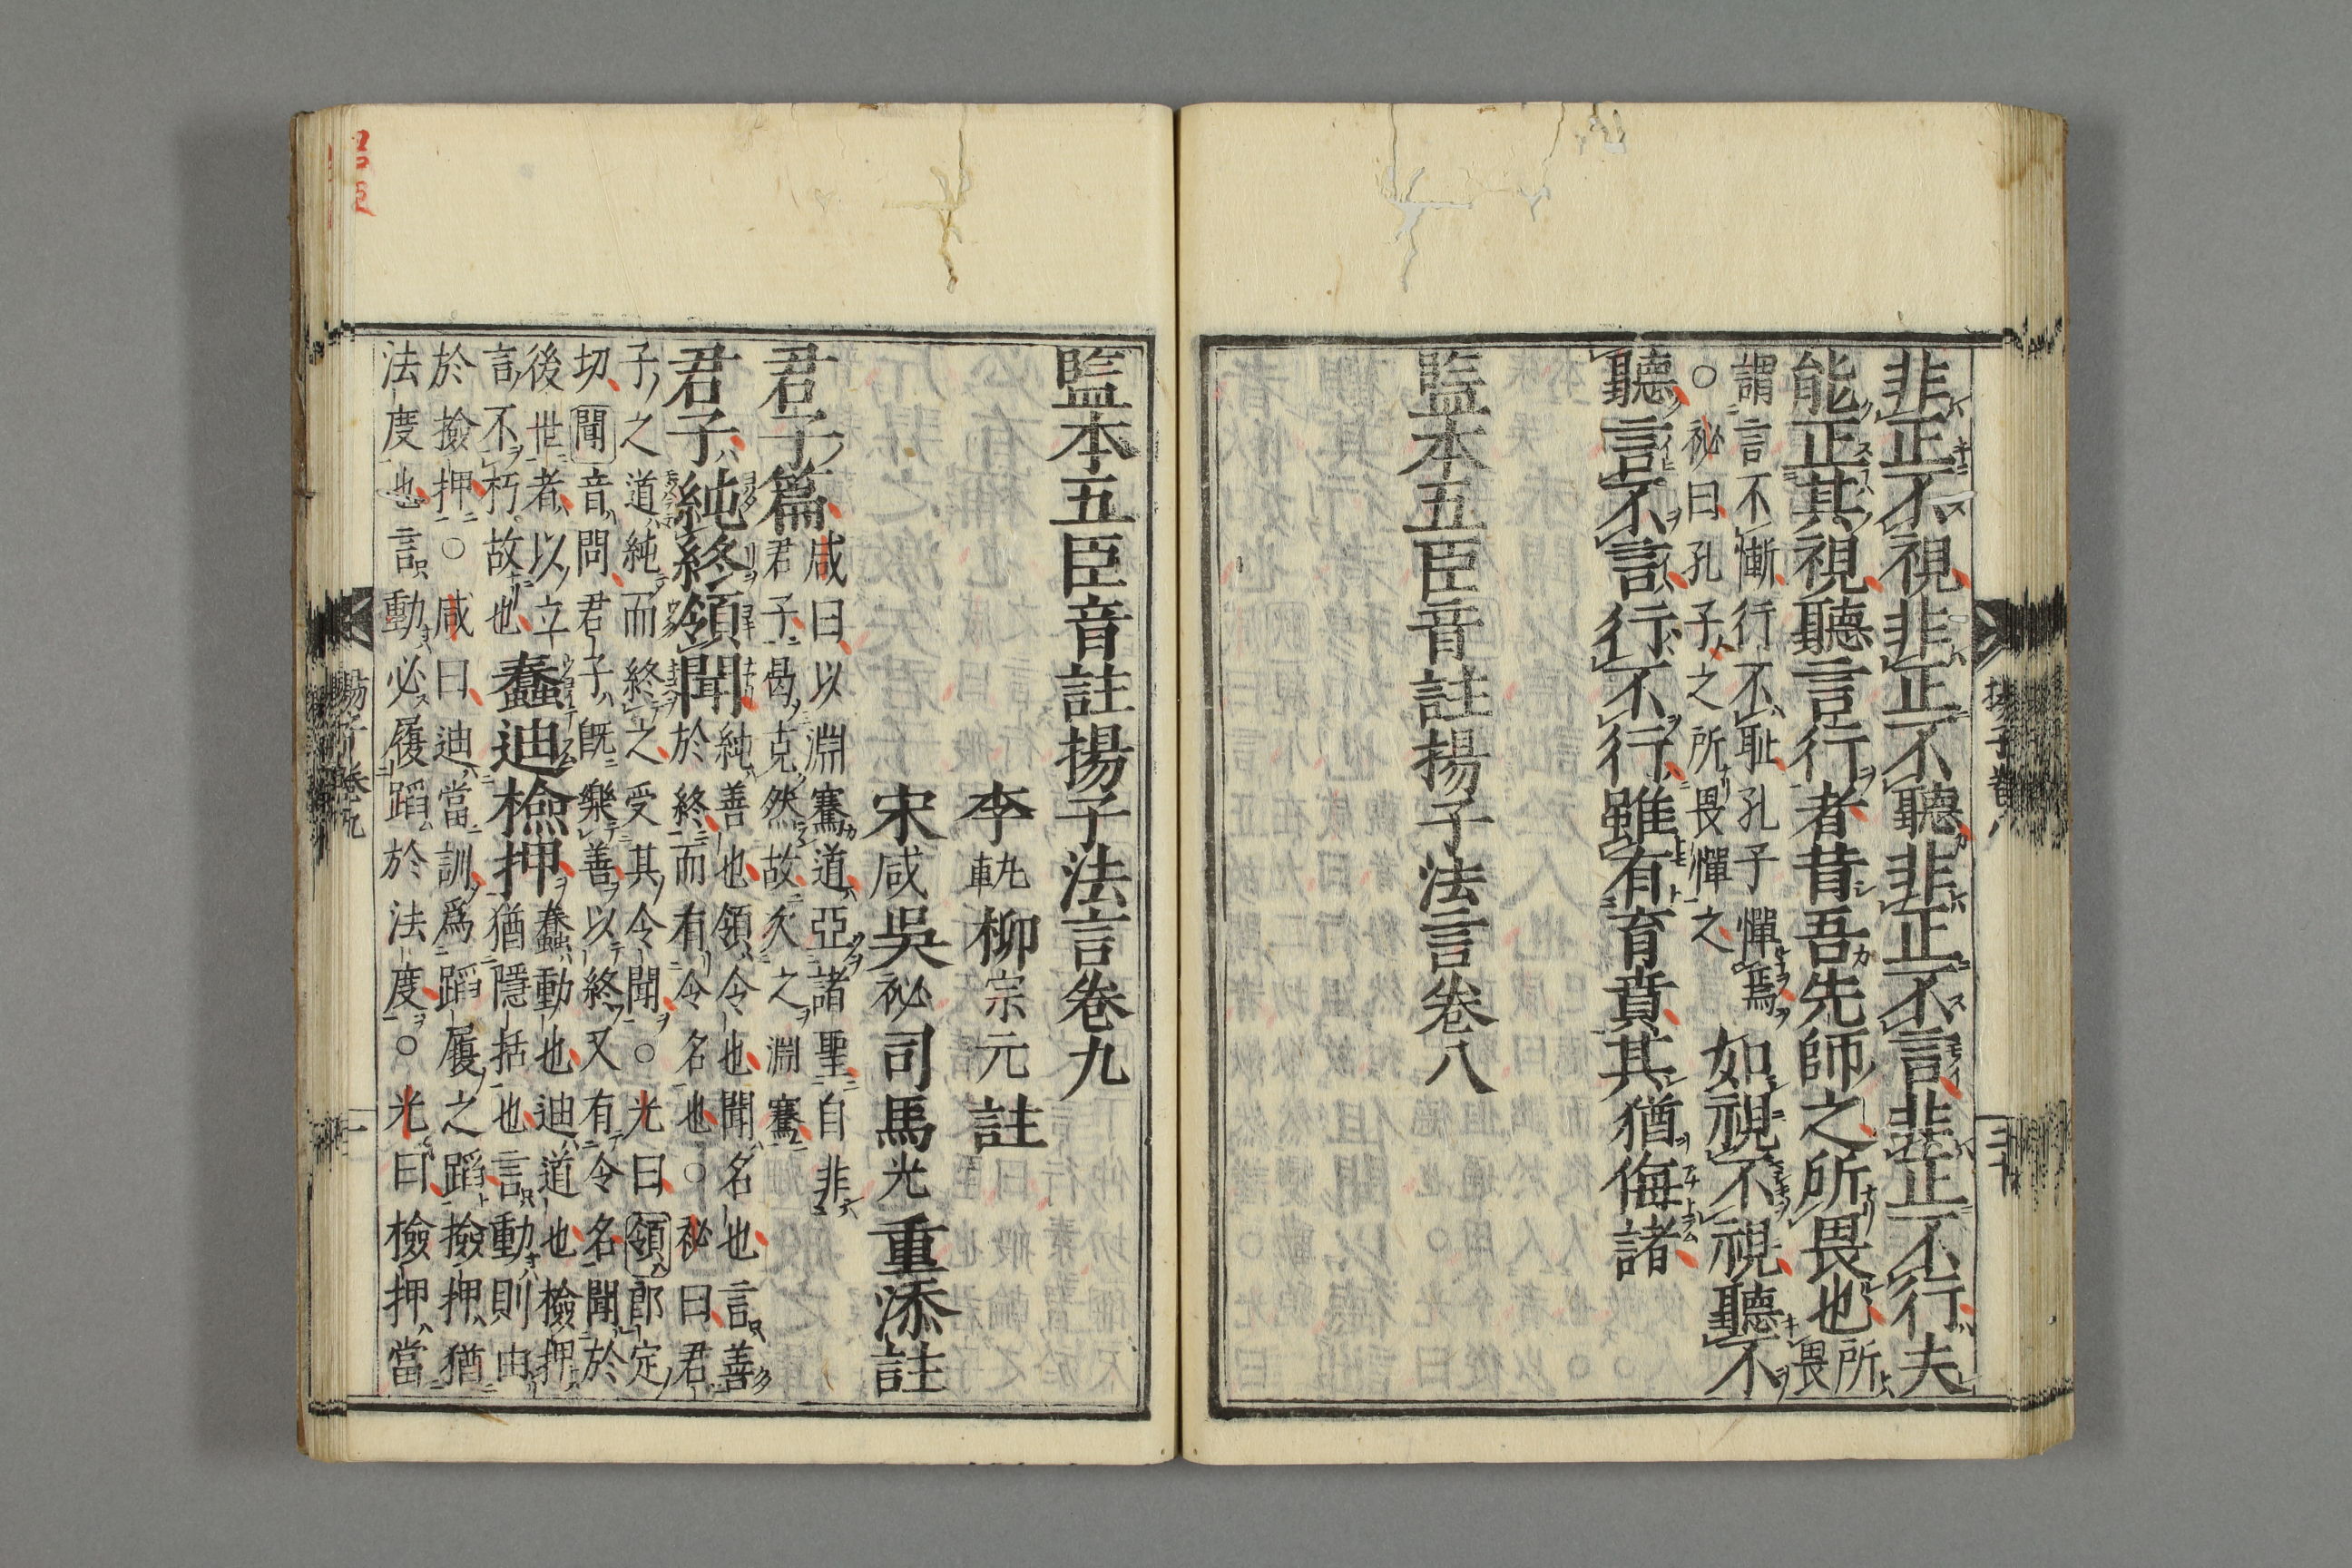 非正不視非正不聽非正不言非正不行夫
能正其視聽言行者昔吾先師之所畏也所畏
謂言不慚行不恥孔子憚焉
○祕曰孔子之所畏憚之
如視不視聽不
聽言不言行不行雖有育賁其猶侮諸
監本五臣音註揚子法言卷八
揚子卷八
監本五臣音註揚子法言卷九
李軌柳宗元註
宋咸吳祕司馬光重添註
君子篇
咸曰以淵騫道亞諸聖自非
君子曷克然故次之淵騫
君子純終領聞
純善也領令也聞名也言善
於終而有令名也○祕曰君
子之道純而終之受其令聞○光曰領郎定
切聞音問君子旣樂善以終又有令名聞於
後世者以立
言不朽故也
蠢迪檢押
蠢動也迪道也檢押
猶隱括也言動則由
於撿押○咸曰迪當訓爲蹈履之蹈撿押猶
法度也言動必履蹈於法度○光曰檢押當
揚子卷九
一